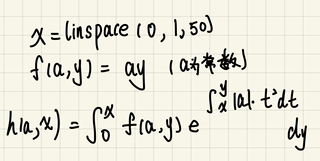 x = linspace(0, 1, 50)
f(a,y) = ay (a为常数)
h(a,x) = ∫₀ˣ f(a,y) e^{∫ₓʸ |a|·t²dt} dy